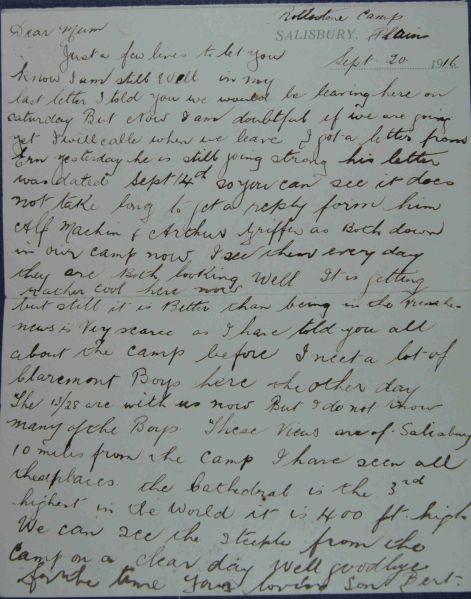 Rollestone Camp
SALISBURY, Plains
Sept 20 1916
Dear Mum
Just a few lines to let you
know I am still Well in my
last letter I told you we would be leaving here on
saturday But Now I am doubtful if we are going
yet I will calle when we leave I got a letter from
Ern yesterday he is still going strong his letter
was dated Sept 14th so you can see it does
not take long to get a reply form him
Alf Machin & Arthur Griffer as Both down
in our camp now I see them every day
they are Both looking Well It is getting
rather cool here now
but still it is Better than being in the
news is Very scarce as I have told you all
about the camp before I meet a lot of
Claremont Boys here the other day
The 13/28 are with us now But I do not know
many of the Boys These Views are of Salisbury
10 miles from the camp I have seen all
these places the Cathedral is the 3rd
highest in the World it is 400 ft high
We can see the steeple from the
camp on a clear day Well goodbye
for the time Your loving son Bert.